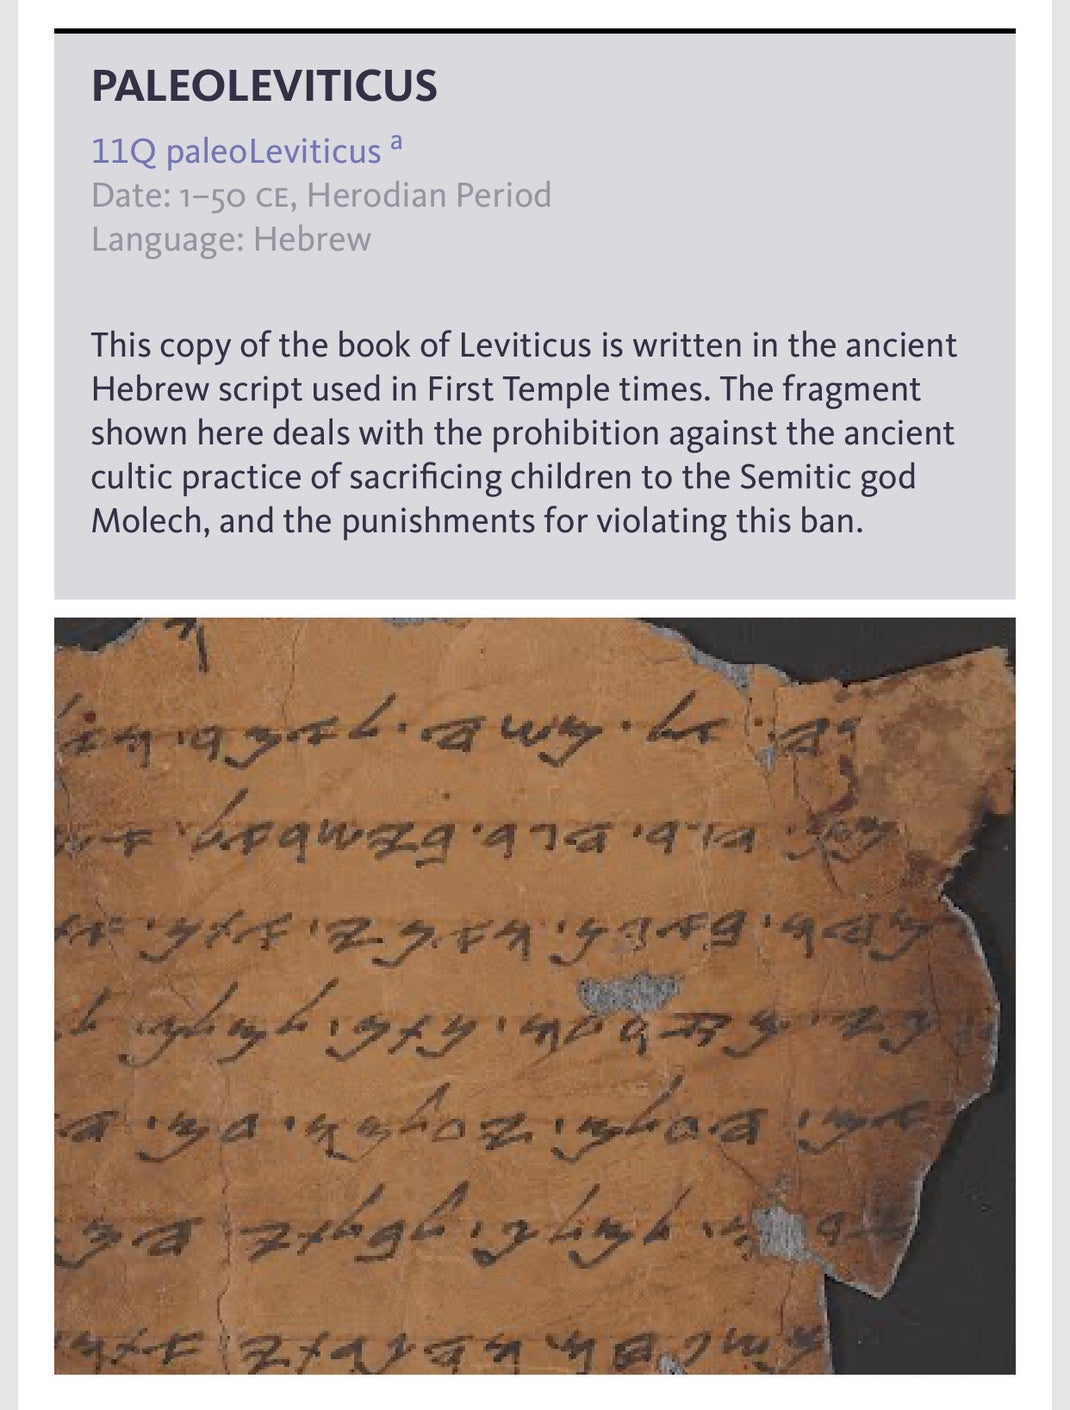 PALEOLEVITICUS
11Q paleoLeviticus a
Date: 1–50 CE, Herodian Period
Language: Hebrew
This copy of the book of Leviticus is written in the ancient
Hebrew script used in First Temple times. The fragment
shown here deals with the prohibition against the ancient
cultic practice of sacrificing children to the Semitic god
Molech, and the punishments for violating this ban.
𐤀𐤋 · 𐤌𐤔𐤄 · 𐤋𐤀𐤌𐤓
𐤄𐤂𐤓 · 𐤄𐤂𐤓 · 𐤁𐤉𐤔𐤓𐤀𐤋
𐤅𐤀𐤍𐤉 · 𐤀𐤕𐤍
𐤊𐤉 · 𐤌𐤆𐤓𐤏𐤅 · 𐤍𐤕𐤍 · 𐤋𐤌𐤋𐤊
𐤄𐤏𐤋𐤌 · 𐤉𐤏𐤋𐤌𐤅 · 𐤏𐤌
𐤋𐤌𐤋𐤊 · 𐤋𐤁𐤋𐤕𐤉